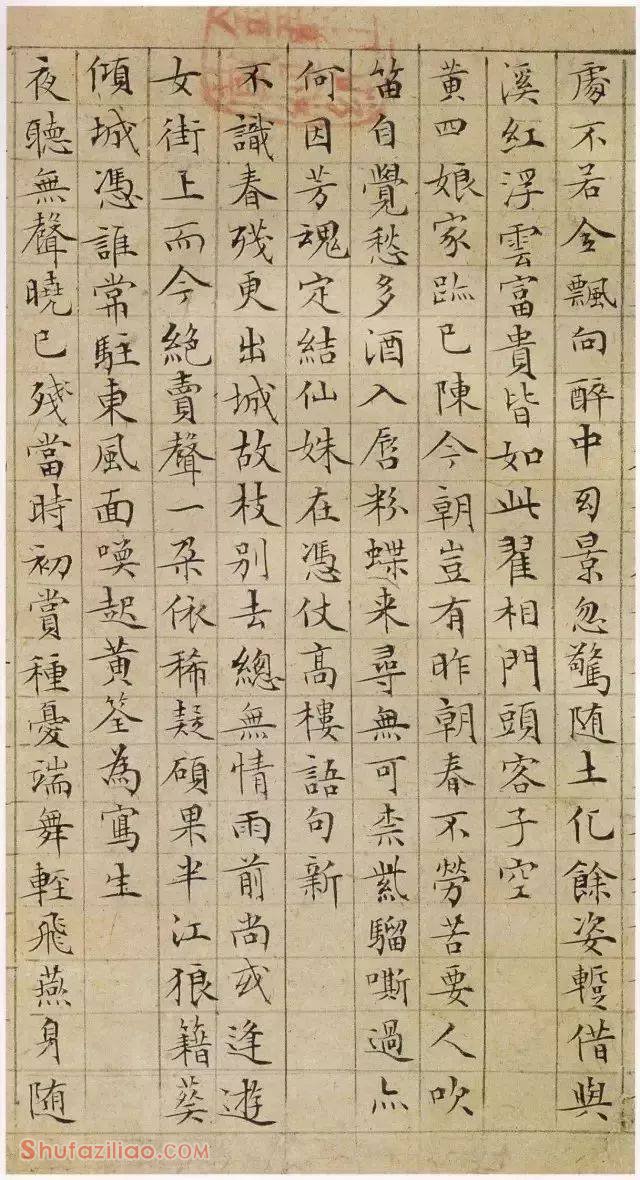 處不若全飄向醉中幻景忽驚随土化餘姿暫借與
溪紅浮雲富貴皆如此翟相門頭客子空
黄四娘家跡已陳今朝豈有昨朝春不勞苦要人吹
笛自覺愁多酒入唇粉蝶来尋無可柰紫騮嘶過亦
何因芳魂定結仙姝在憑仗高樓語句新
不識春殘更出城故枝别去總無情雨前尚或逢遊
女街上而今絶賣聲一朶依稀疑碩果半江狼籍葵
傾城憑誰常駐東風面喚起黄筌為寫生
夜聽無聲曉已殘當時初賞種憂端舞輕飛燕身随
Shufaziliao.com